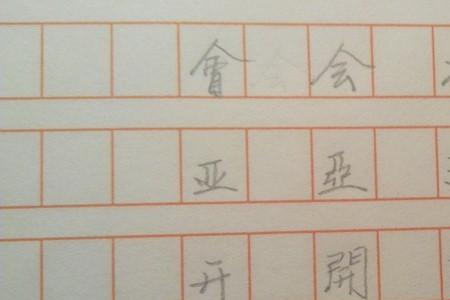 會 会
亚 亞
开 開